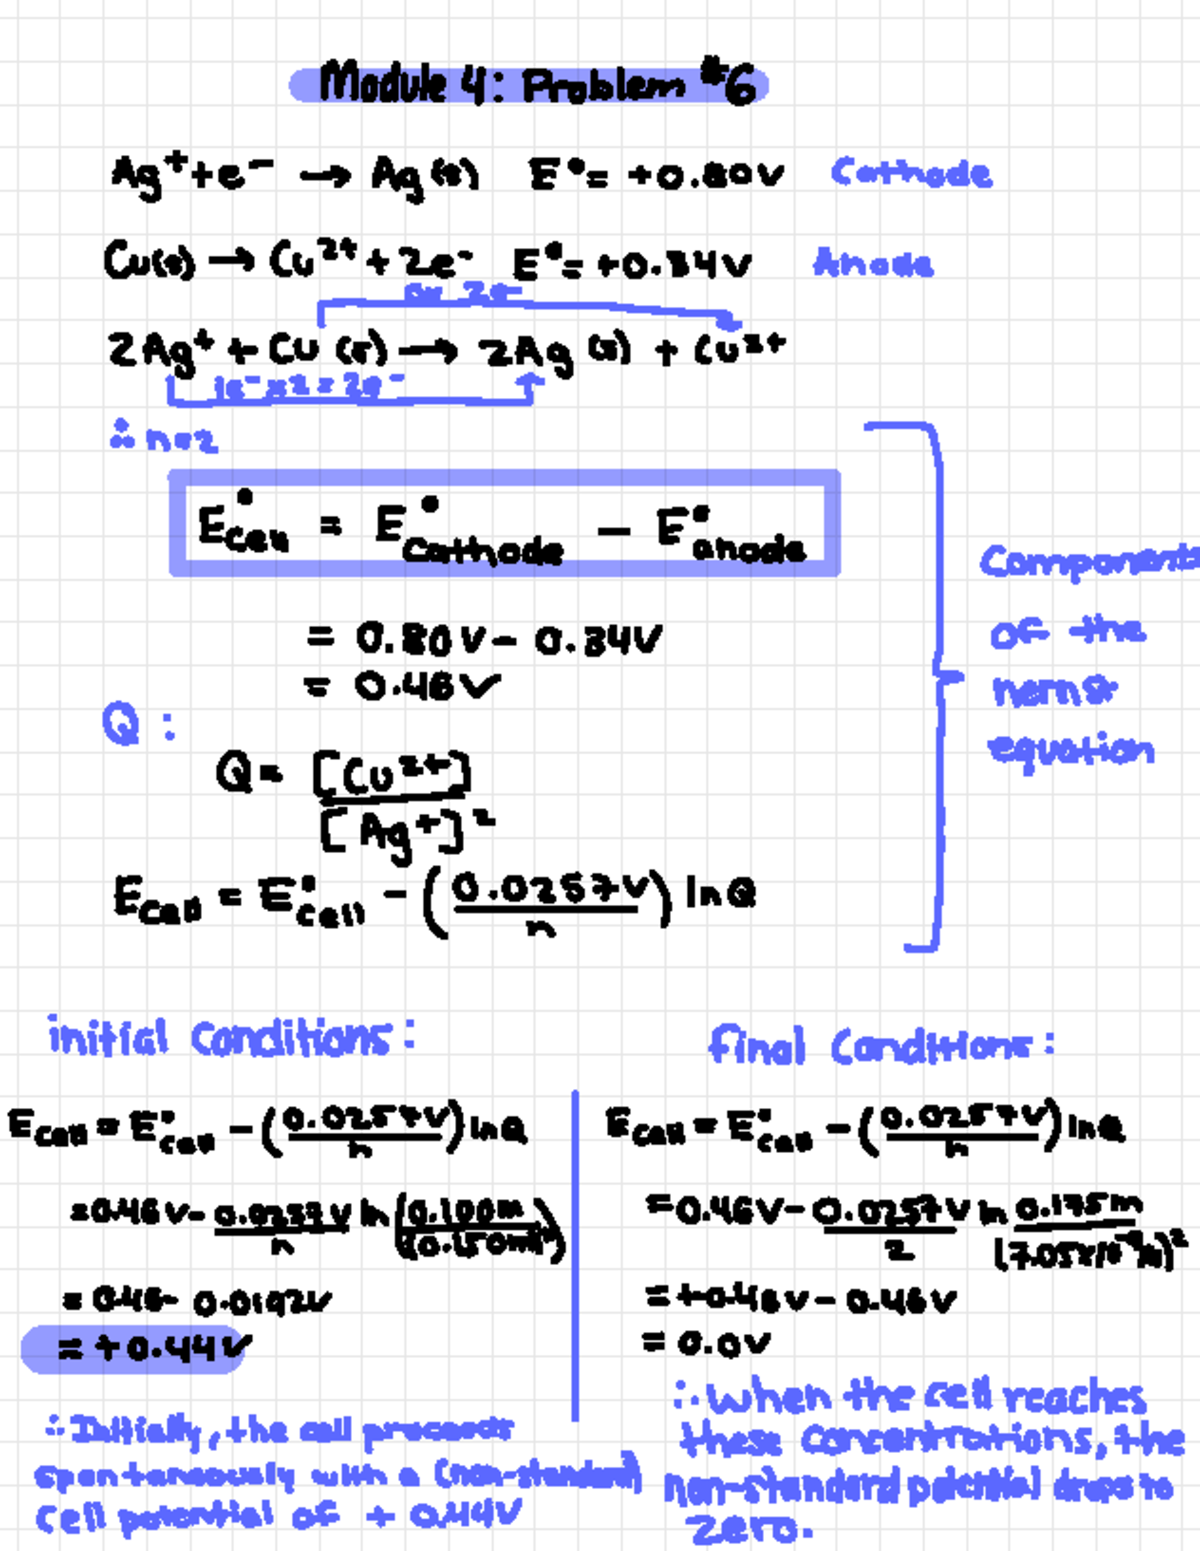 Module 4: Problem #6
Ag⁺ + e⁻ → Ag(s) E° = +0.80V Cathode
Cu(s) → Cu²⁺ + 2e⁻ E° = +0.34V Anode
2e⁻
2Ag⁺ + Cu (s) → 2Ag (s) + Cu²⁺
1e⁻ x 2 = 2e⁻
∴ n=2
E°cell = E°cathode − E°anode
= 0.80V − 0.34V
= 0.46V
Components
of the
nernst
equation
Q:
Q = [Cu²⁺] / [Ag⁺]²
Ecell = E°cell − (0.0257V / n) ln Q
initial conditions:
Ecell = E°cell − (0.0257V / n) ln Q
= 0.46V − 0.0257V / n ln (0.100m / (0.150m)²)
= 0.46 − 0.0192V
= +0.44V
∴ Initially, the cell proceeds
spontaneously with a (non-standard)
cell potential of + 0.44V
final conditions:
Ecell = E°cell − (0.0257V / n) ln Q
= 0.46V − 0.0257V / 2 ln 0.175m
= +0.46V − 0.46V
= 0.0V
∴ when the cell reaches
these concentrations, the
non-standard potential drops to
zero.